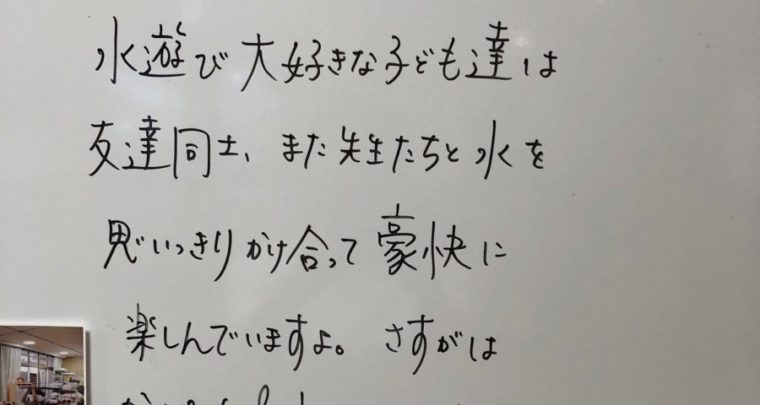 水遊び大好きな子ども達は
友達同士、また先生たちと水を
思いっきりかけ合って豪快に
楽しんでいますよ。さすがは